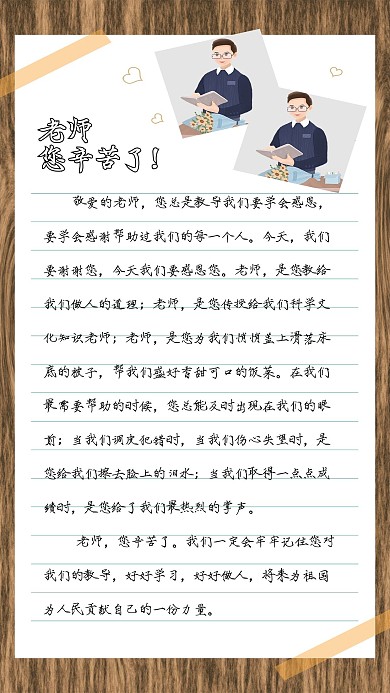 老师
您辛苦了！
敬爱的老师，您总是教导我们要学会感恩，
要学会感谢帮助过我们的每一个人。今天，我们
要谢谢您，今天我们要感恩您。老师，是您教给
我们做人的道理；老师，是您传授给我们科学文
化知识老师；老师，是您为我们悄悄盖上滑落床
底的被子，帮我们盛好香甜可口的饭菜。在我们
最需要帮助的时候，您总能及时出现在我们的眼
前；当我们调皮犯错时，当我们伤心失望时，是
您给我们擦去脸上的泪水；当我们取得一点点成
绩时，是您给了我们最热烈的掌声。
老师，您辛苦了。我们一定会牢牢记住您对
我们的教导，好好学习，好好做人，将来为祖国
为人民贡献自己的一份力量。